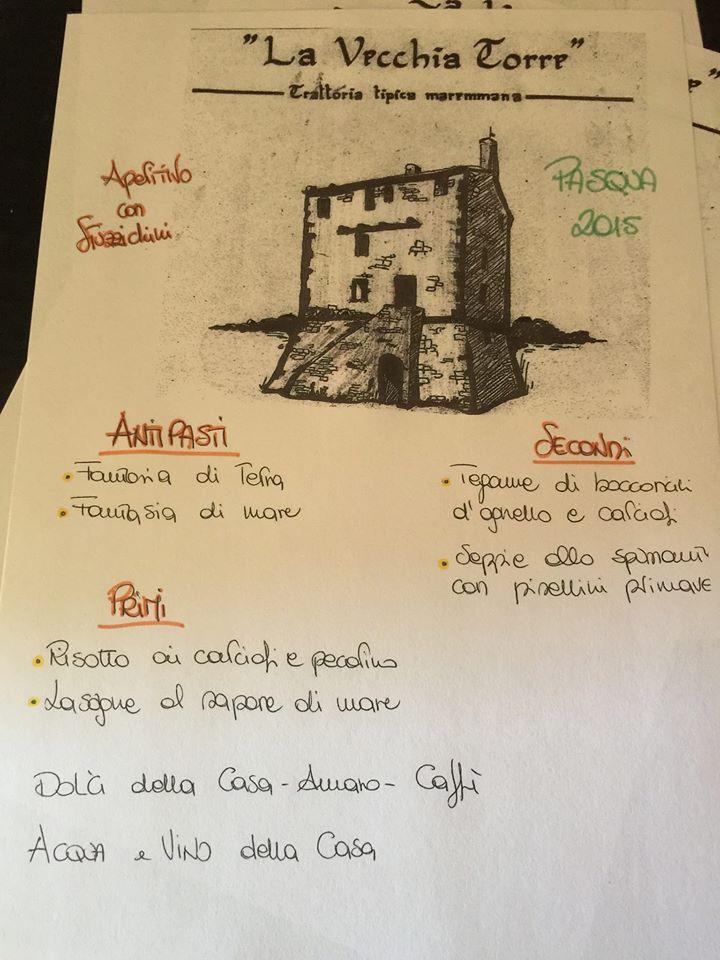 "La Vecchia Torre"
Trattoria tipica maremmana
Aperitivo
con
Stuzzichini
PASQUA
2015
ANTIPASTI
Fantasia di Terra
Fantasia di mare
PRIMI
Risotto ai carciofi e pecorino
Lasagne al sapore di mare
SECONDI
Tegame di bocconcini
d'agnello e carciofi
Seppie allo spumant
con pisellini primave
Dolci della Casa - Amaro - Caffè
ACQUA e VINO della Casa